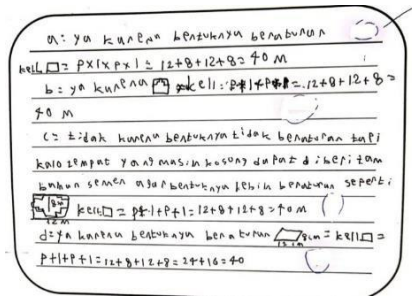 a = ya karena bentuknya beraturan
kell □ = p x l x p x l = 12+8+12+8 = 40 M
b = ya karena kell = p+l+p+l = 12+8+12+8 =
40 M
c = tidak karena bentuknya tidak beraturan tapi
kalo tempat yang masih kosong dapat diberi tam
bahan semen agar bentuknya lebih beraturan seperti
8M kell □ = p+l+p+l = 12+8+12+8 = 40 M
12 M
d = ya karena bentuknya beraturan 8cm = kell □ =
12 cm
p+l+p+l = 12+8+12+8 = 24+16 = 40